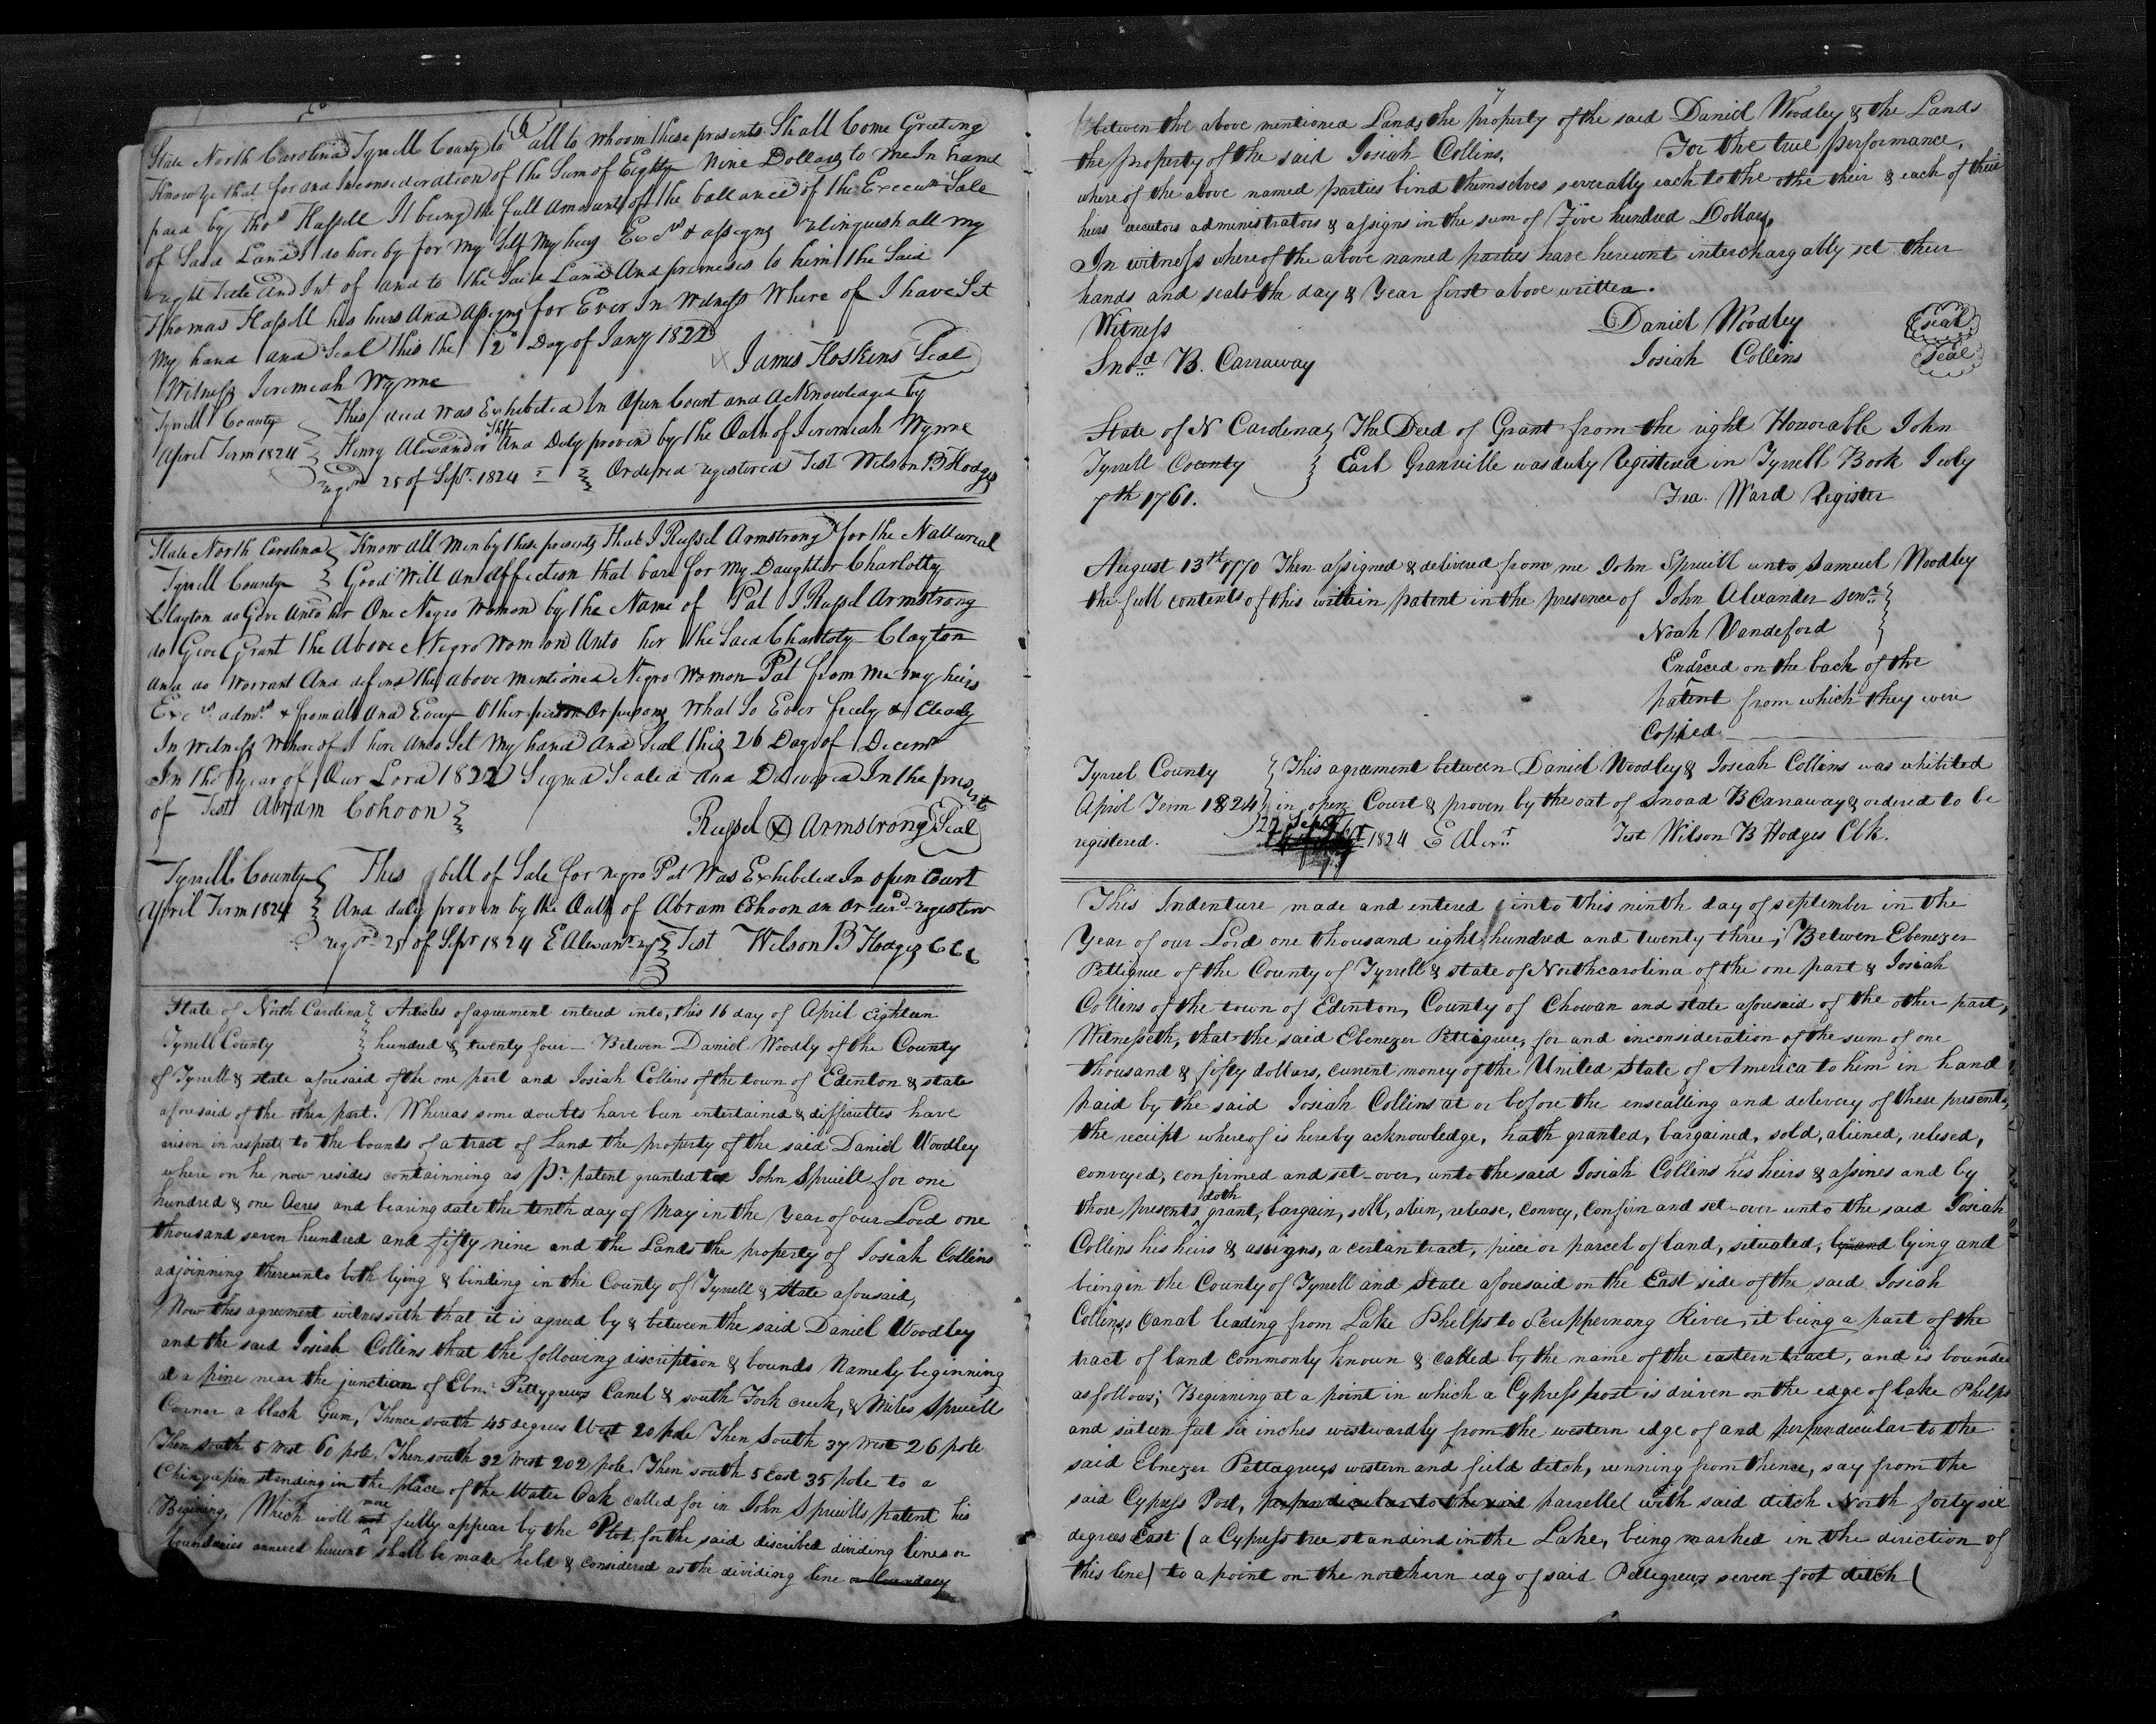 6
State North Carolina Tyrell County to all to whoom these presents Shall Come Greeting
Know ye that for and Inconsideration of the Sum of Eighty Nine Dollars to me In hand
paid by Thos Hassell It being the full Amount of the ballance of the Execun Sale
of Said Land I do here by for My Self My heirs Excrs & assigns relinquish all My
right Title And Int of and to the Said Land And premises to him the Said
Thomas Hassell his heirs And Assigns for Ever In Witness Where of I have Set
My hand and Seal this the 12 Day of Jany 1822
James Hoskins Seal
Witness Jeremiah Wynne
Tyrell County This deed was Exhibited In Open Court and Acknowledged by
April Term 1824 Henry Alexander Shff And Duly proven by the Oath of Jeremiah Wynne
regd 25 of Sept. 1824 Ordered registered Test Wilson B Hodges
State North Carolina Know all Men by these presents That I Russel Armstrong for the Natureal
Tyrell County Good Will An Affection that bare for My Daughter Charlotty
Clayton do Give Unto her One Negro Womon by the Name of Pat I Russel Armstrong
do Give Grant the Above Negro Womon Unto her the Said Charloty Clayton
and do Worrant And defend the above mentioned Negro Womon Pat from me my heirs
Excrs admrs & from all And Every Other person Or persons What So Ever freely & Clearly
In Witness Where of I here Unto Set My hand And Seal this 26 Day of Decemr
In the year of Our Lord 1822 Signed Sealed and Delivered In the presents
of Test Abram Cohoon
Russel X Armstrong Seal
Tyrell County This bill of Sale for negro Pat Was Exhibited In open Court
April Term 1824 And duly proven by the Oath of Abram Cohoon an Ordered registerd
regd 25 of Sepr 1824 E Alexandr Test Wilson B Hodges Clk
State of North Carolina Articles of agreement entered into, this 16 day of April Eighteen
Tyrell County hundred & twenty four — Betwen Daniel Woodly of the County
of Tyrrell & state aforesaid of the one part and Josiah Collins of the town of Edenton & state
aforesaid of the other part. Whereas some doubts have been entertained & difficulties have
arisen in respects to the bounds of a tract of Land the property of the said Daniel Woodley
where on he now resides containning as Pr. patent granted to John Spruill for one
hundred & one Acres and bearing date the tenth day of May in the Year of our Lord one
thousand seven hundred and fifty nine and the Lands the property of Josiah Collins
adjoinning thereunto both lying & binding in the County of Tyrrell & state aforesaid,
Now this agreement witnesseth that it is agreed by & between the said Daniel Woodley
and the said Josiah Collins that the following discription & bounds Namely beginning
at a pine near the junction of Ebnr. Pettygrews Canel & south Fork creek, & Miles Spruill
Corner a black Gum, Thence south 45 degrees West 20 pole Then South 37 West 26 pole
Then south 5 West 60 pole, Then south 32 West 202 pole. Then south 5 East 35 pole to a
Chinquepin standing in the place of the Water Oak called for in John Spruills patent his
Begining, Which will more fully appear by the Plot for the said discribed dividing lines or
boundaries annexed hereunt shall be made held & considered as the dividing line or boundary
7
between the above mentioned Lands the property of the said Daniel Woodley & the Lands
the property of the said Josiah Collins. For the true performance,
where of the above named parties bind themselves severally each to the othe their & each of their
heirs executors administrators & assigns in the sum of Five hundred Dollars
In witness whereof the above named parties have hereunt interchargably set their
hands and seals the day & Year first above written.
Witness Daniel Woodley seal
Snod B. Carraway Josiah Collins Seal
State of N Carolina The Deed of Grant from the right Honorable John
Tyrrell County Earl Granville was duly Registered in Tyrrell Book July
7th 1761. Fra. Ward Register
August 13th 1770 Then assigned & delivered from me John Spruill unto Samuel Woodley
the full contents of this within patent in the presence of John Alexander Senr.
Noah Vandeford
Endrced on the back of the
patent from which they were
Copied.
Tyrrel County This agreement between Daniel Woodley & Josiah Collins was exhibited
April Term 1824 in open Court & proven by the oat of Snoad B Carraway & ordered to be
registered. 22 Sept 1824 E Alexr. Test Wilson B Hodges Clk.
This Indenture made and entered into this ninth day of september in the
Year of our Lord one thousand eight hundred and twenty three; Betwen Ebenezer
Pettigrue of the County of Tyrrell & state of Northcarolina of the one part & Josiah
Collins of the town of Edenton, County of Chowan and state aforesaid of the other part,
Witnesseth, that the said Ebenezer Pettigrue, for and inconsideration of the sum of one
thousand & fifty dollars, current money of the United State of America to him in hand
paid by the said Josiah Collins at or before the ensealling and delivery of these presents,
the receipt whereof is hereby acknowledge, hath granted, bargained, sold, aliened, relesed,
conveyed, confirmed and set-over, unto the said Josiah Collins his heirs & assines and by
those presents doth grant, bargain, sell, alien, release, convey, confirm and set-over unto the said Josiah
Collins his heirs & assigns, a certan tract, piece or parcel of land, situated, lying and
being in the County of Tyrrell and State aforesaid on the East side of the said Josiah
Collins,s Canal leading from Lake Phelps to Scuppernong River, it being a part of the
tract of land commonly known & called by the name of the eastern tract, and is bounded
as follows; Beginning at a point in which a Cypress post is driven on the edge of lake Phelps
and sixteen feet six inches westwardly from the western edge of and perpendicular to the
said Ebnezer Pettegrue,s western and field ditch, running from thence, say from the
said Cypress Post, perpendicular to the said parrellel with said ditch North forty six
degrees East (a Cypress tree standind in the Lake, being marked in the direction of
this line) to a point on the northern edg of said Pettigrew,s seven foot ditch (